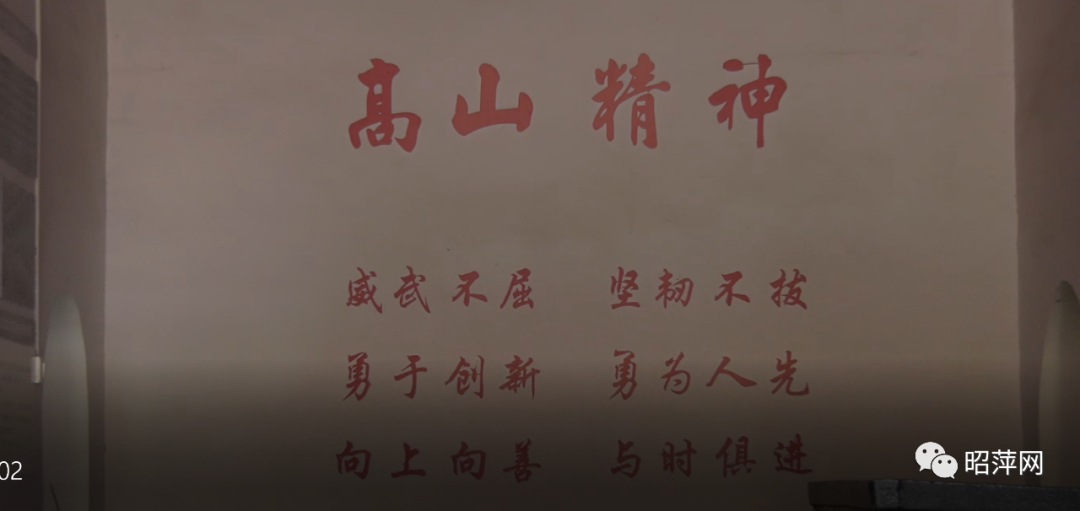 高山精神
威武不屈 坚韧不拔
勇于创新 勇为人先
向上向善 与时俱进
02
昭萍网